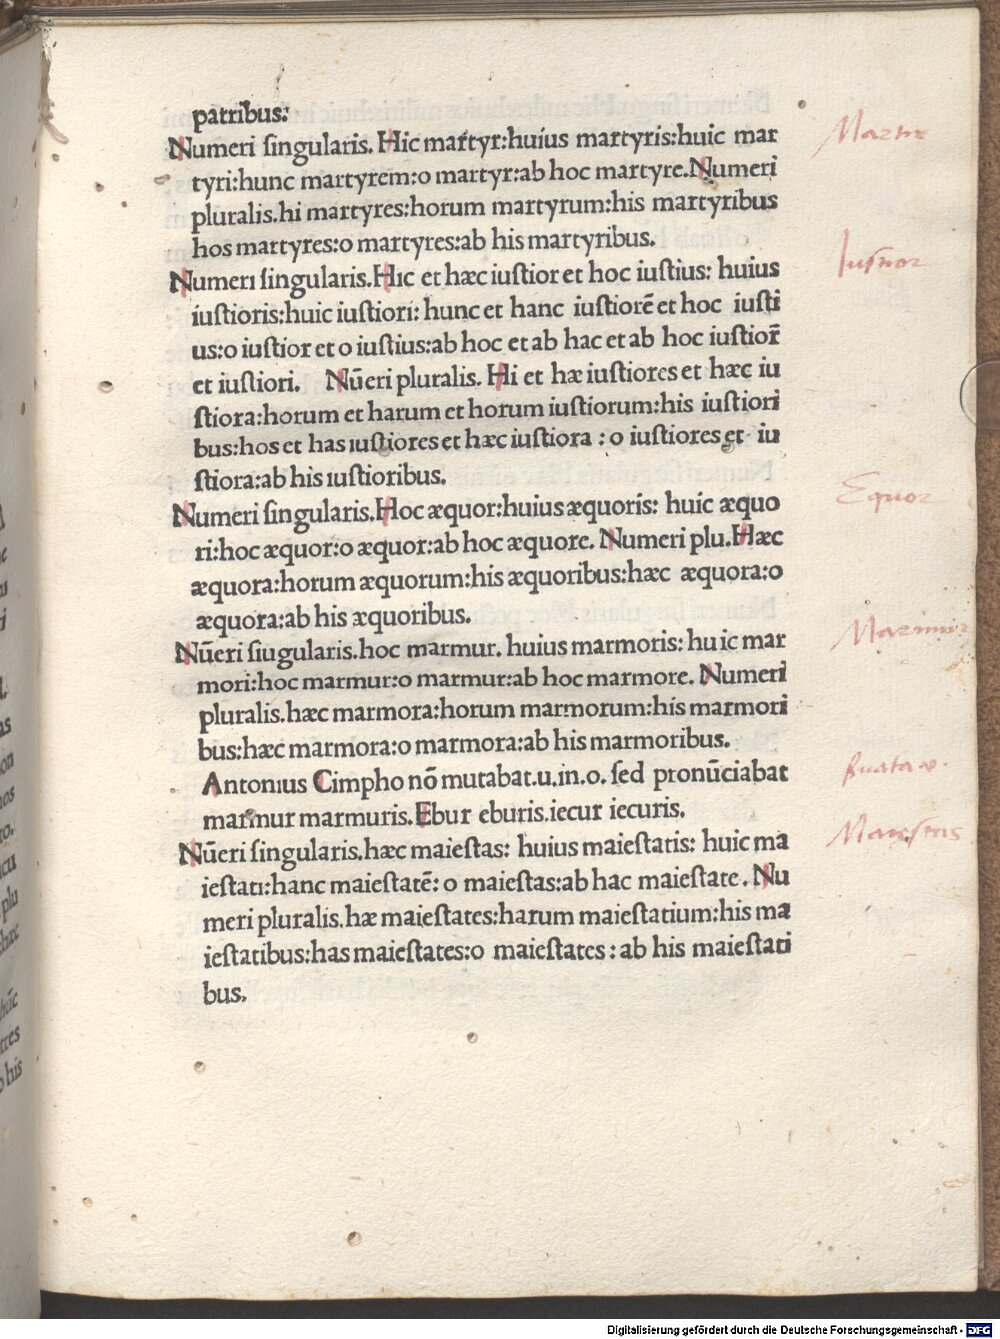 patribus:
Numeri ſingularis. Hic martyr:huius martyris:huic mar
tyri:hunc martyrem:o martyr:ab hoc martyre.Numeri
pluralis.hi martyres:horum martyrum:his martyribus
hos martyres:o martyres:ab his martyribus.
Numeri ſingularis.Hic et hæc iuſtior et hoc iuſtius: huius
iuſtioris:huic iuſtiori: hunc et hanc iuſtiorē et hoc iuſti
us:o iuſtior et o iuſtius:ab hoc et ab hac et ab hoc iuſtior̄
et iuſtiori. Nūeri pluralis. Hi et hæ iuſtiores et hæc iu
ſtiora:horum et harum et horum iuſtiorum:his iuſtiori
bus:hos et has iuſtiores et hæc iuſtiora : o iuſtiores et iu
ſtiora:ab his iuſtioribus.
Numeri ſingularis.Hoc æquor:huius æquoris: huic æquo
ri:hoc æquor:o æquor:ab hoc æquore. Numeri plu.Hæc
æquora:horum æquorum:his æquoribus:hæc æquora:o
æquora:ab his æquoribus.
Nūeri ſiugularis.hoc marmur. huius marmoris: huic mar
mori:hoc marmur:o marmur:ab hoc marmore. Numeri
pluralis.hæc marmora:horum marmorum:his marmori
bus:hæc marmora:o marmora:ab his marmoribus.
Antonius Cimpho nō mutabat.u.in.o. ſed pronūciabat
marmur marmuris.Ebur eburis.iecur iecuris.
Nūeri ſingularis.hæc maieſtas: huius maieſtatis: huic ma
ieſtati:hanc maieſtatē: o maieſtas:ab hac maieſtate. Nu
meri pluralis.hæ maieſtates:harum maieſtatium:his ma
ieſtatibus:has maieſtates:o maieſtates : ab his maieſtati
bus.
Iuſtior
Equor
Maieſtas
Digitalisierung gefördert durch die Deutsche Forschungsgemeinschaft - DFG